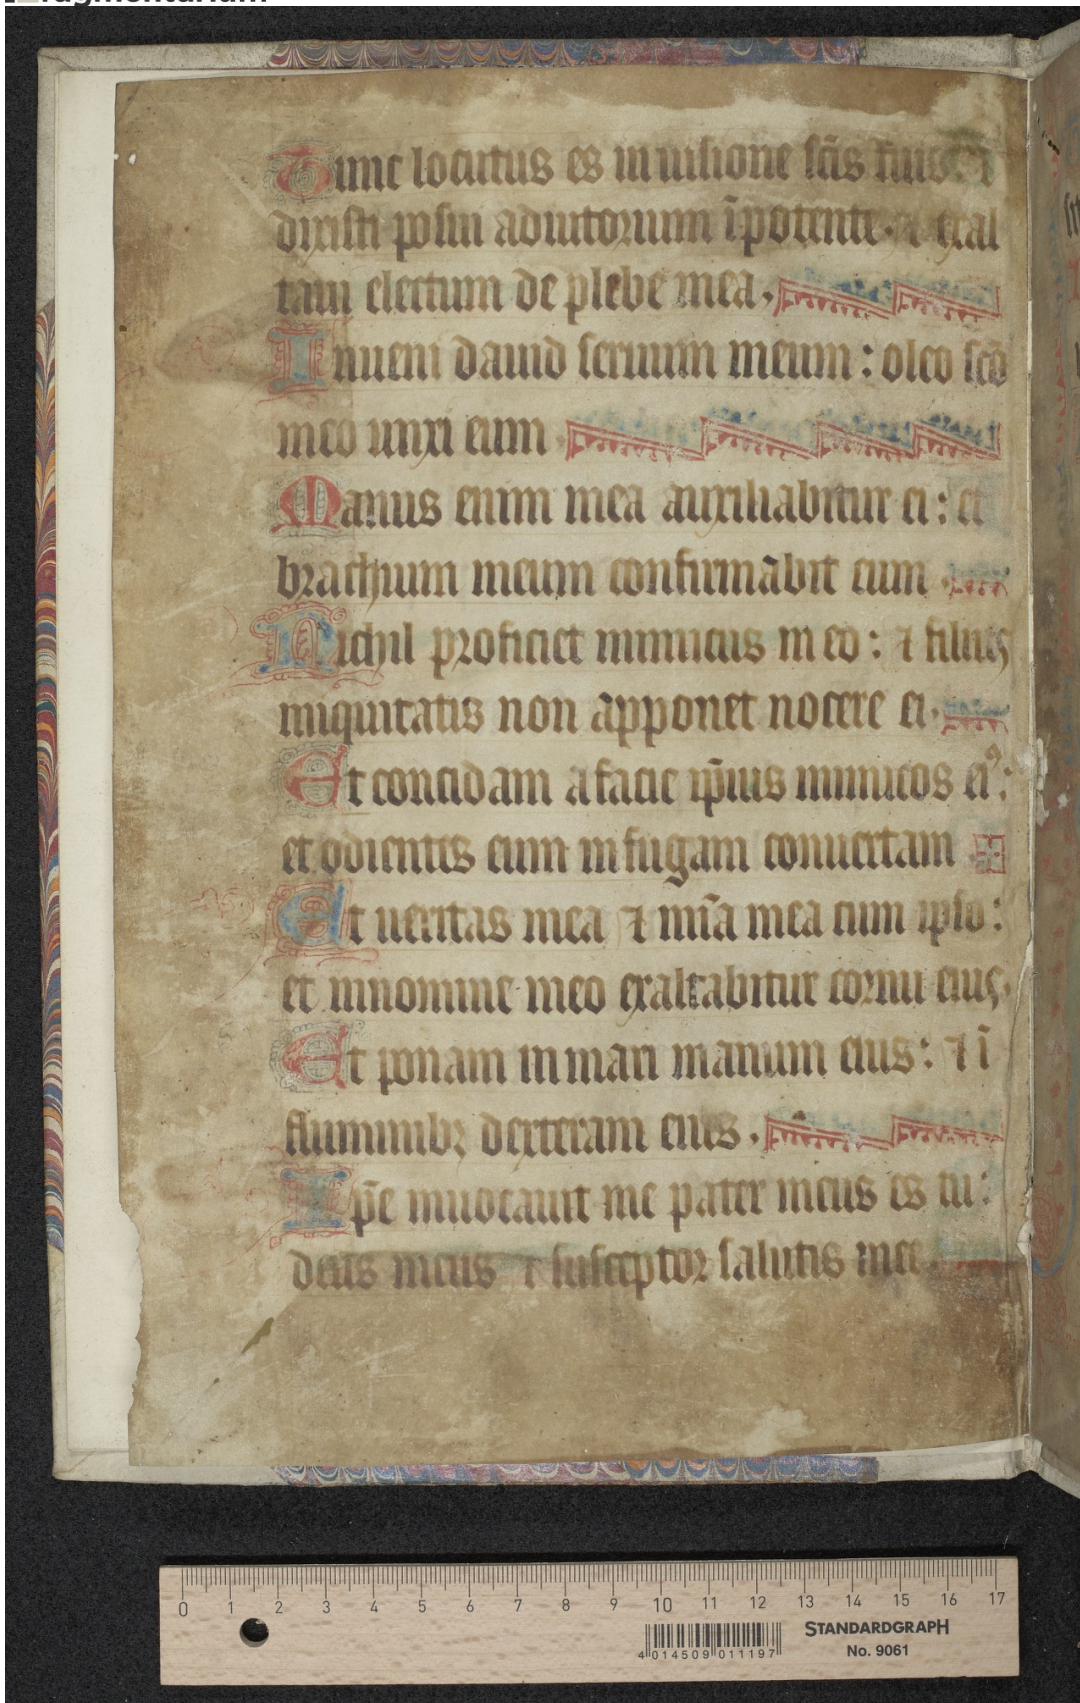 Tunc locutus es in uisione scīs tuis: ⁊
dixisti posui adiutorium ī potente· ⁊ exal
taui electum de plebe mea·
Inueni dauid seruum meum: oleo scō
meo unxi eum·
Manus enim mea auxiliabitur ei: et
brachium meum confirmabit eum·
Nichil proficiet inimicus in eo: ⁊ filius
iniquitatis non apponet nocere ei·
Et concidam a facie ip̄ius inimicos eiꝰ:
et odientes eum in fugam conuertam
Et ueritas mea ⁊ mīa mea cum ipso:
et in nomine meo exaltabitur cornu eius·
Et ponam in mari manum eius: ⁊ ī
fluminibꝫ dexteram eius·
Ip̄e inuocauit me pater meus es tu:
deus meus ⁊ susceptor salutis mee
0 1 2 3 4 5 6 7 8 9 10 11 12 13 14 15 16 17
STANDARDGRAPH
No. 9061
4 014509 011197